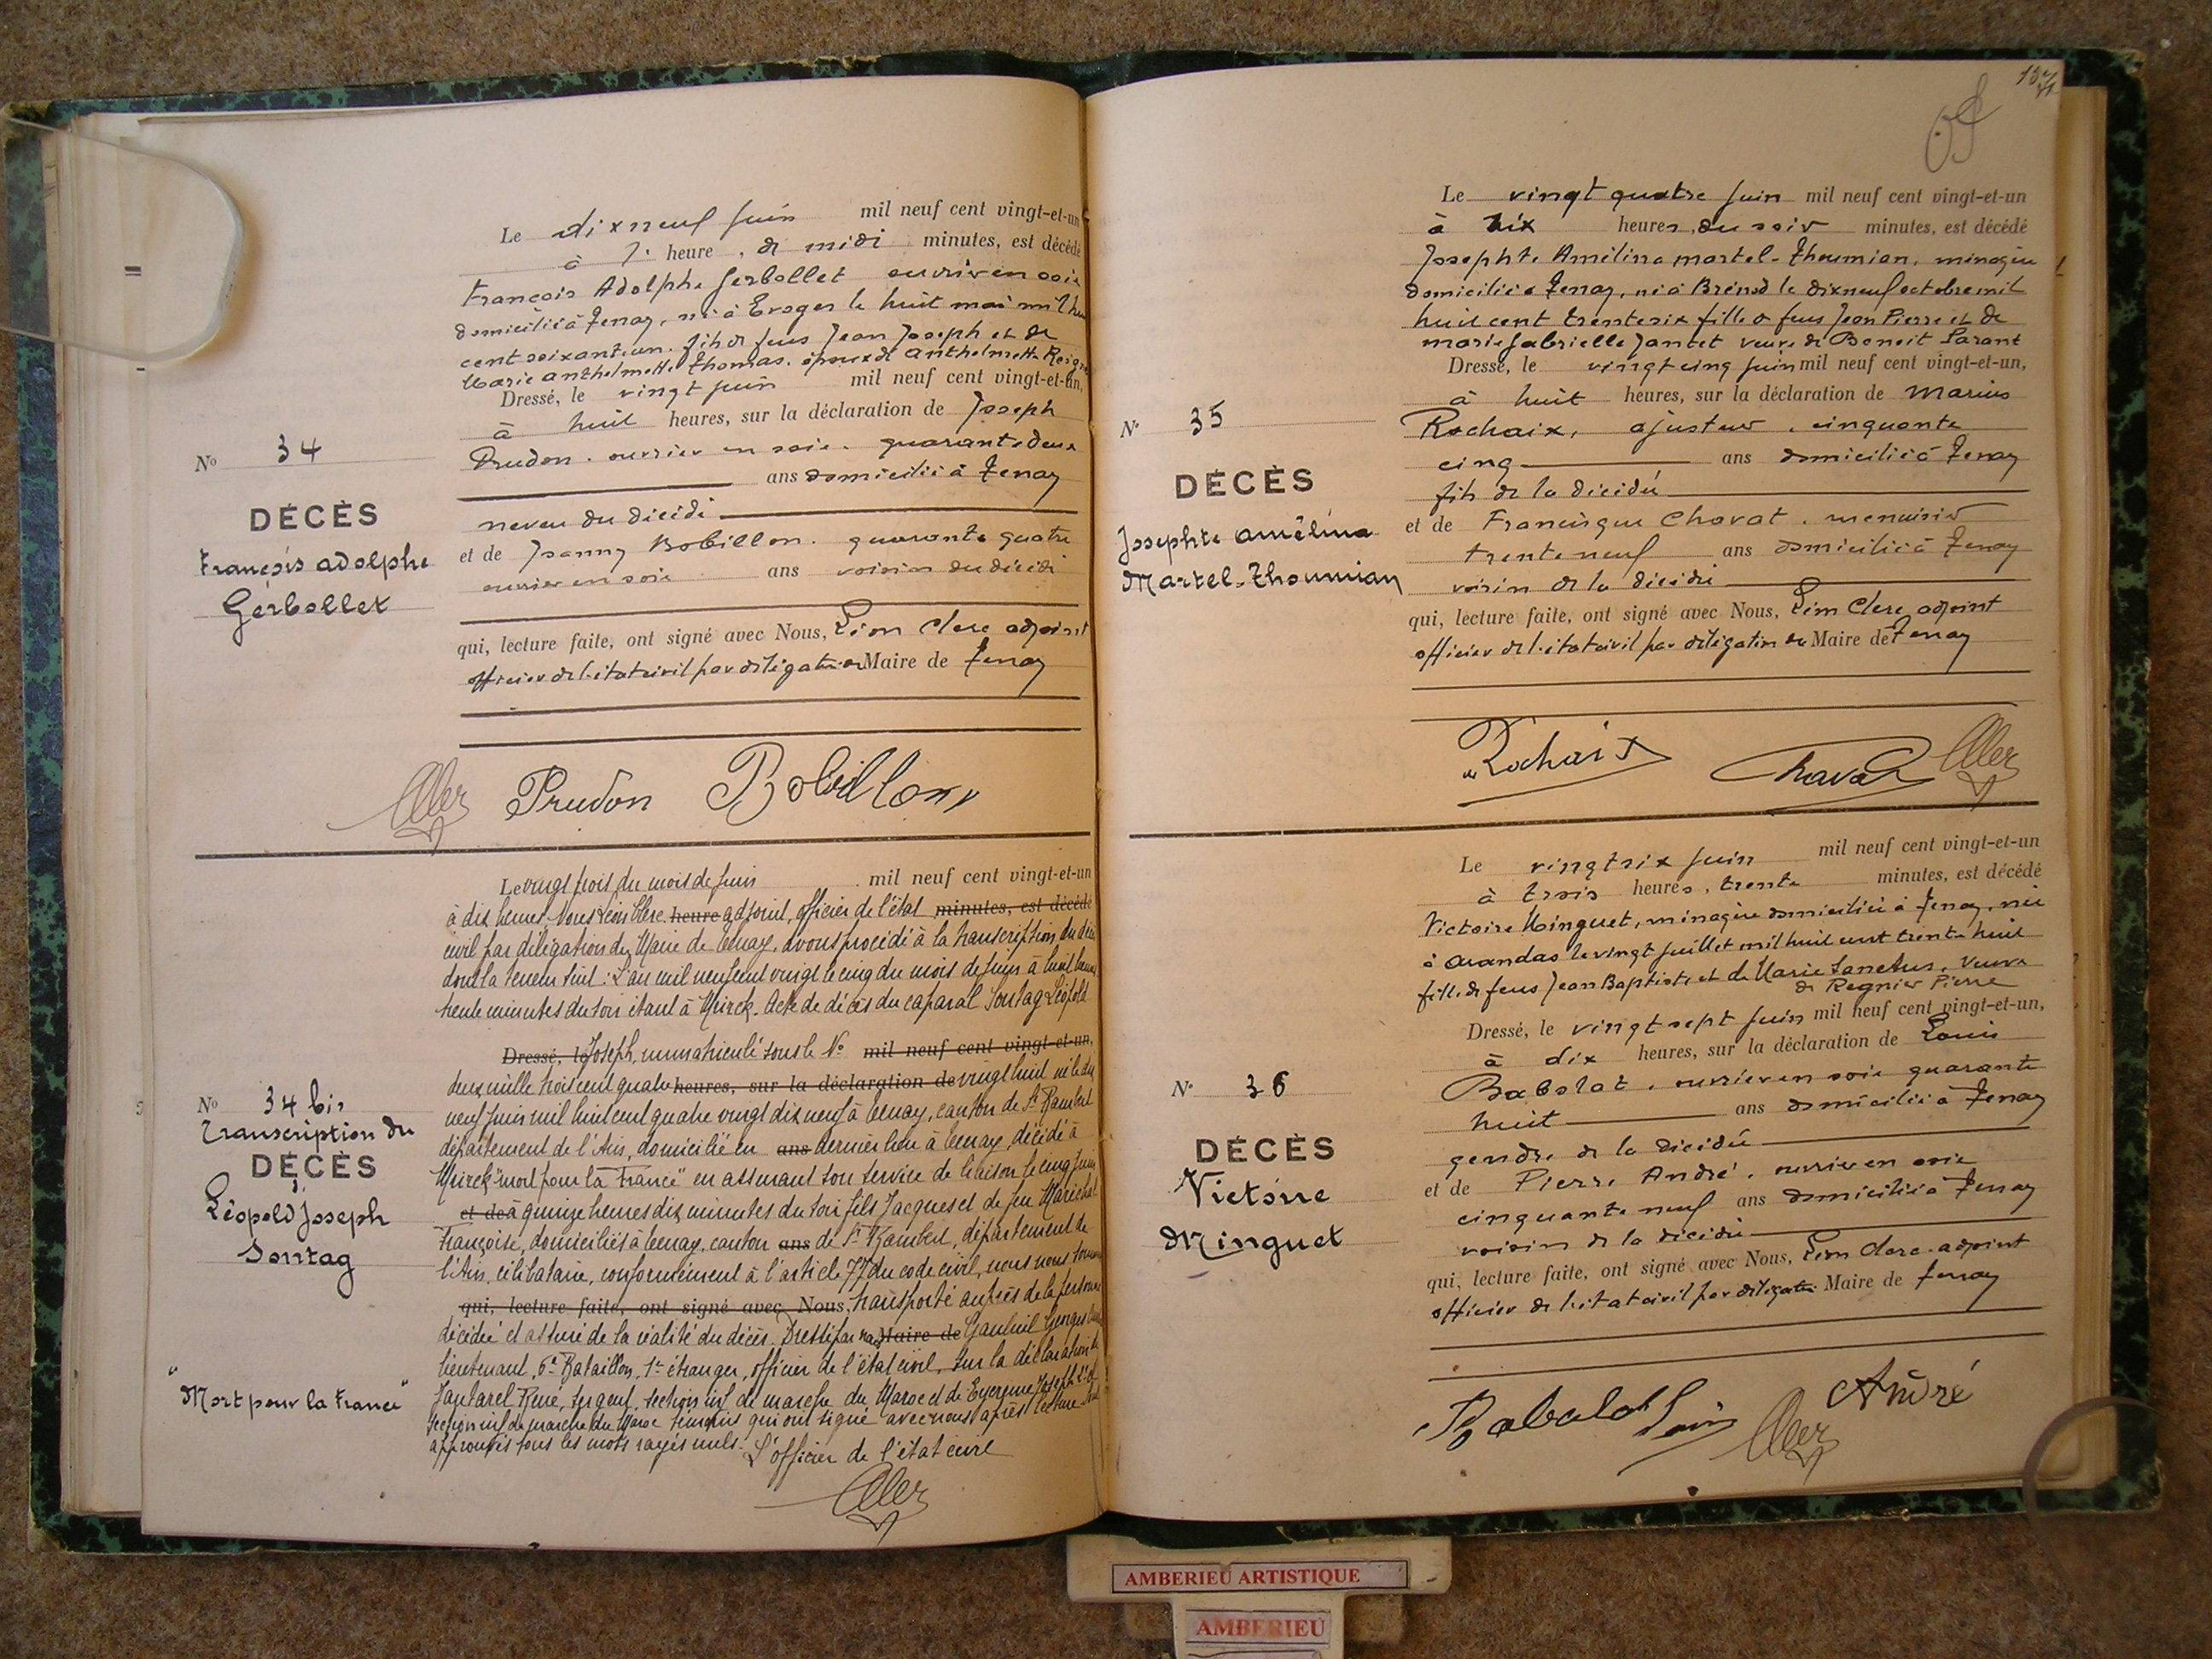 Le dix neuf juin mil neuf cent vingt-et-un
à 1 heure, de midi minutes, est décédé
François Adolphe Gerbollet ouvrier en soie
domicilié à Tenay, né à Evoges le huit mai mil hu
cent soixante un. fils de feus Jean Joseph et de
Marie Anthelmette Thomas. époux de Anthelmette
Dressé, le vingt juin mil neuf cent vingt-et-un,
à huit heures, sur la déclaration de Joseph
Prudon. ouvrier en soie. quarante deux
ans domicilié à Tenay
neveu du décédé
et de Joanny Bobillon. quarante quatre
ouvrier en soie ans voisin du décédé
qui, lecture faite, ont signé avec Nous, Léon Clerc adjoint
officier de l'état civil par délégation du Maire de Tenay
No 34
DÉCÈS
François Adolphe
Gerbollet
Prudon Bobillon
Le vingt trois du mois de juin mil neuf cent vingt-et-un
à dix heures, Nous Léon Clerc heure adjoint, officier de l'état minutes, est décédé
civil par délégation du Maire de Tenay, avons procédé à la transcription du décès
dont la teneur suit : L'an mil neuf cent vingt le cinq du mois de juin à huit heures
trente minutes du soir étant à Mzirck. Acte de décès du caporal Sontag Léopold
Dressé, le Joseph, immatriculé sous le No mil neuf cent vingt-et-un,
deux mille trois cent quatre heures, sur la déclaration de vingt huit né le du
neuf juin mil huit cent quatre vingt dix neuf à Tenay, canton de St Rambert
département de l'Ain, domicilié en ans dernier lieu à Tenay, décédé à
Mzirck "mort pour la France" en assurant son service de liaison le cinq juin
et de à quinze heures dix minutes du soir fils Jacques et de feu Maréchal
Françoise, domiciliés à Tenay, canton ans de St Rambert, département de
l'Ain, célibataire, conformément à l'article 77 du code civil, nous nous sommes
qui, lecture faite, ont signé avec Nous, transporté auprès de la personne
décédée et assuré de la réalité du décès. Dressé par nous Maire de Georges
lieutenant, 6e Bataillon, 1er étranger, officier de l'état civil, sur la déclaration de
René, sergent, section inf de marche du Maroc et de Joseph
section inf de marche du Maroc témoins qui ont signé avec nous après lecture
approuvés tous les mots rayés nuls. L'officier de l'état civil
No 34 bis
Transcription du
DÉCÈS
Léopold Joseph
Sontag
"Mort pour la France"
Le vingt quatre juin mil neuf cent vingt-et-un
à six heures, du soir minutes, est décédé
Josephte Amélina Martel-Thoumian, ménagère
domiciliée à Tenay, née à Brénod le dix neuf octobre mil
huit cent trente six fille de feus Jean Pierre et de
Marie Gabrielle Jantet veuve de Benoit Parant
Dressé, le vingt cinq juin mil neuf cent vingt-et-un,
à huit heures, sur la déclaration de Marius
Rochaix, ajusteur, cinquante
cinq ans domicilié à Tenay
fils de la décédée
et de Francisque Chavat, menuisier
trente neuf ans domicilié à Tenay
voisin de la décédée
qui, lecture faite, ont signé avec Nous, Léon Clerc adjoint
officier de l'état civil par délégation du Maire de Tenay
No 35
DÉCÈS
Josephte Amélina
Martel-Thoumian
Rochaix Chavat
Le vingt six juin mil neuf cent vingt-et-un
à trois heures, trente minutes, est décédé
Victoire Minguet, ménagère domiciliée à Tenay, née
à Arandas le vingt juillet mil huit cent trente huit
fille de feus Jean Baptiste et de Marie Sanctus, veuve
de Regnier Pierre
Dressé, le vingt sept juin mil neuf cent vingt-et-un,
à dix heures, sur la déclaration de Louis
Babolat, ouvrier en soie quarante
huit ans domicilié à Tenay
gendre de la décédée
et de Pierre André, ouvrier en soie
cinquante neuf ans domicilié à Tenay
voisin de la décédée
qui, lecture faite, ont signé avec Nous, Léon Clerc adjoint
officier de l'état civil par délégation Maire de Tenay
No 36
DÉCÈS
Victoire
Minguet
Babolat Louis André
AMBERIEU ARTISTIQUE
AMBERIEU